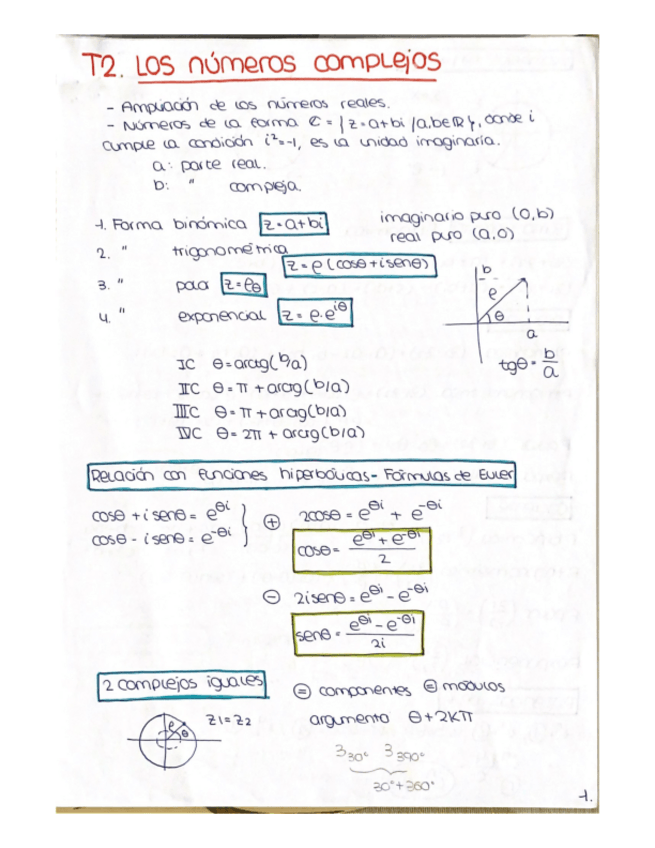 T2. LOS números complejos
- Ampliación de los números reales.
- Números de la forma ℂ = { z=a+bi /a,b∈ℝ }, donde i
cumple la condición i²=-1, es la unidad imaginaria.
a: parte real.
b: " compleja.
1. Forma binómica z=a+bi
imaginario puro (0,b)
real puro (a,0)
2. " trigonométrica z=ρ(cosθ+isenθ)
3. " polar z=ρθ
4. " exponencial z=ρ·e^iθ
b
ρ
θ
a
tgθ=b/a
IC θ=arctg(b/a)
IIC θ=π+arctg(b/a)
IIIC θ=π+arctg(b/a)
IVC θ=2π+arctg(b/a)
Relación con funciones hiperbólicas - Fórmulas de Euler
cosθ+isenθ=e^θi
cosθ-isenθ=e^-θi
⊕ 2cosθ=e^θi+e^-θi
cosθ=(e^θi+e^-θi)/2
⊖ 2isenθ=e^θi-e^-θi
senθ=(e^θi-e^-θi)/2i
2 complejos iguales
⊜ componentes ⊜ módulos
ρ θ
z1=z2
argumento θ+2kπ
3 30° 3 390°
30°+360°
1.